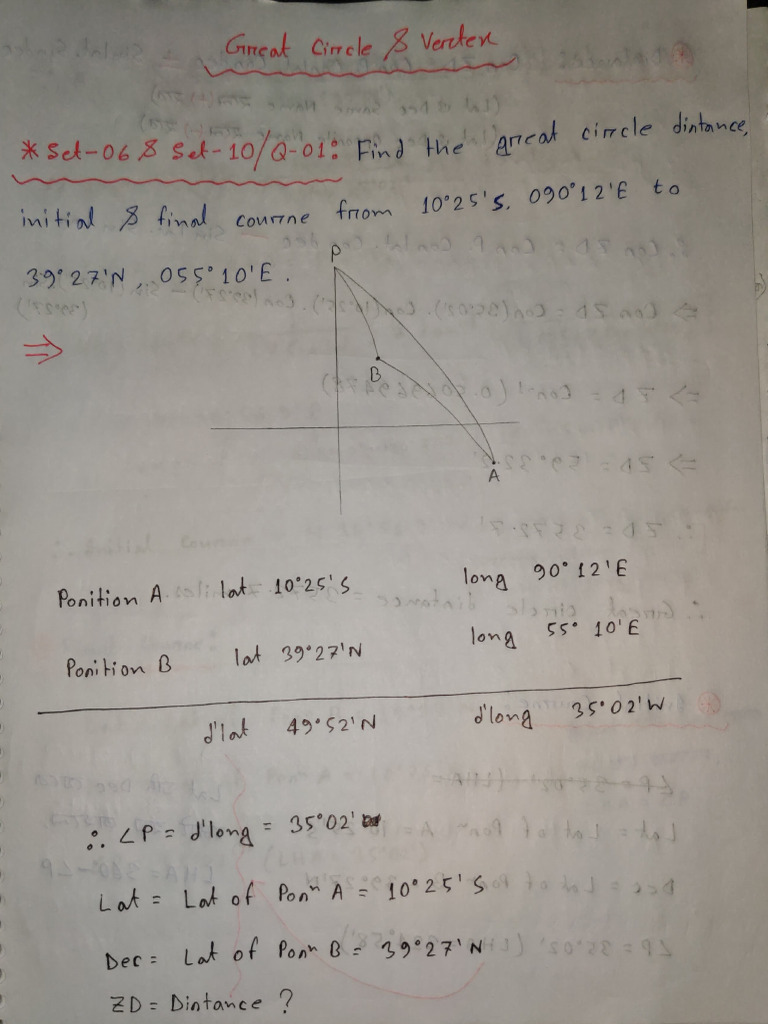 Great Circle & Vertex
* Set-06 & Set-10/Q-01: Find the great circle distance,
initial & final course from 10°25'S. 090°12'E to
39°27'N, 055°10'E.
⇒
P
B
A
Position A lat 10°25'S long 90°12'E
Position B lat 39°27'N long 55°10'E
d'lat 49°52'N d'long 35°02'W
∴ ∠P = d'long = 35°02'
Lat = Lat of Posⁿ A = 10°25'S
Dec = Lat of Posⁿ B = 39°27'N
ZD = Distance ?